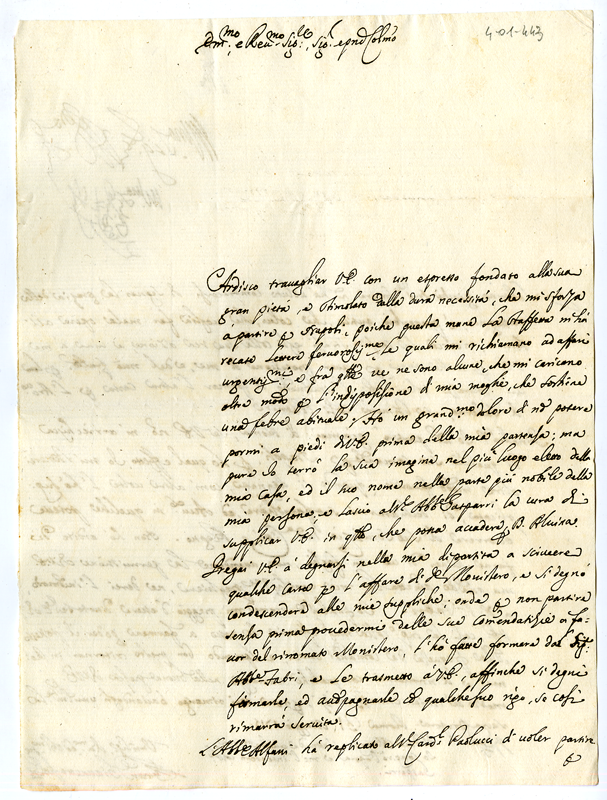 4-01-443
Em.mo e Rev.mo Sig.re, Sig.r e pnd Colmo
Ardisco travagliar V.E. con un espresso fondato alla sua
gran pietà, e stimolato dalla dura necessità, che mi sforza
à partire p Napoli, poiche questa mane la staffetta m'hà
recato lettere fervorosissime le quali mi richiamano ad affari
urgentiss.mi, e frà qste ve ne sono alcune, che mi caricono
oltre modo p l'indisposizione di mia moglie, che sostiene
una febre abituale. Hò un grand.mo dolore di nõ potere
pormi a piedi di V.E. prima della mia partenza; ma
pure io terrò la sua imagine nel più luogo eletto della
mia casa, ed il suo nome nella parte più nobile della
mia persona, e lascio al Sr. Abb.e Gasparri la cura di
supplicar V.E. in qto, che potrà accadere p B. Eluira.
Pregai V.E. à degnarsi nella mia dipartita à scrivere
qualche carta p l'affare di do Monistero, e si degnò
condescendere alle mie suppliche; onde p non partire
senza prima provedermi delle sue comendatizie a fa-
vor del rinomato Monistero, l'hò fatte formare dal Sig.r
Abb.e Fabri, e le trasmetto a V.E., affinche si degni
firmarle, ed accopagnarle cõ qualche suo rigo, se così
rimarrà servita.
L'Abb.e Alfani hà replicato al Sr. Card.l Paolucci di voler partire
p